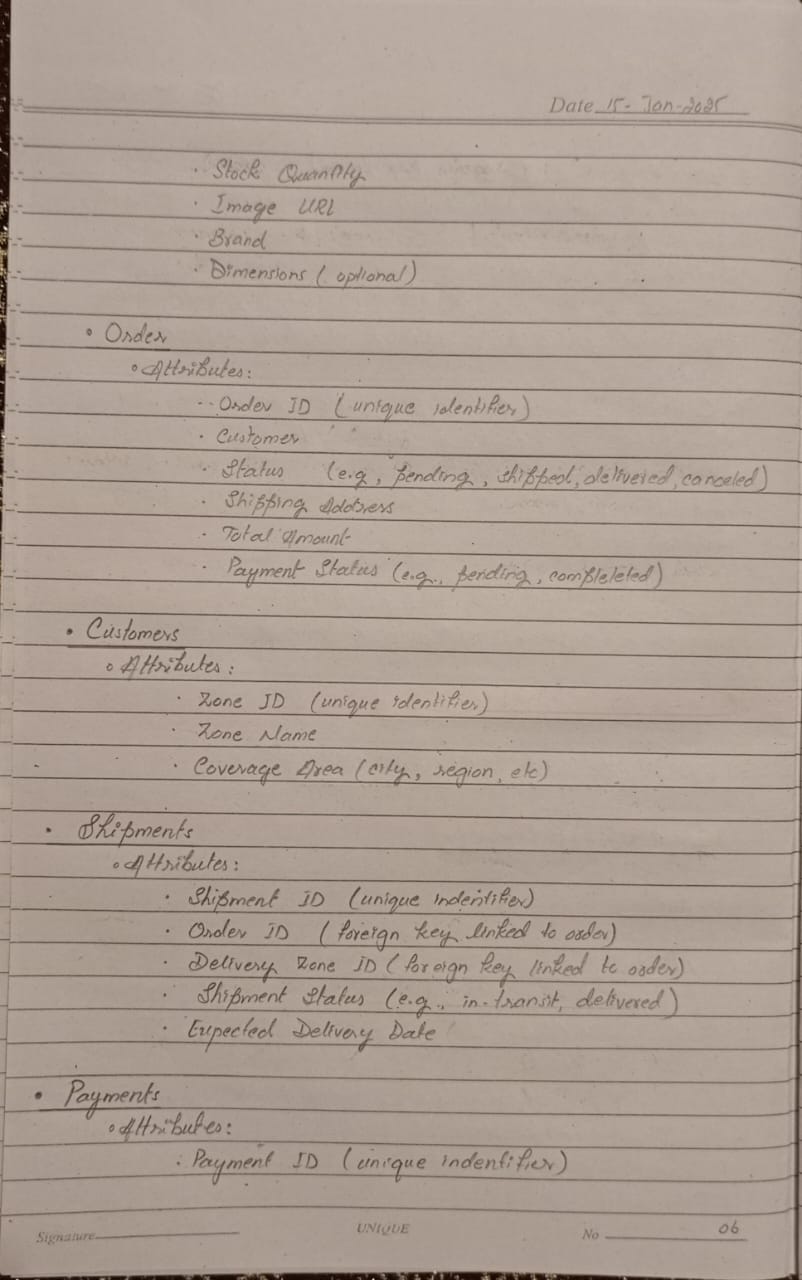 Date 15-Jan-2025
· Stock Quantity
· Image URL
· Brand
· Dimensions ( optional)
• Order
∘ Attributes:
·- Order ID (unique identifier)
· Customer
· Status (e.g, pending, shipped, delivered, canceled)
· Shipping Address
· Total Amount
· Payment Status (e.g., pending, compleleted)
• Customers
∘ Attributes:
· Zone ID (unique identifier)
· Zone Name
· Coverage Area (city, region, etc)
• Shipments
∘ Attributes:
· Shipment ID (unique indentifier)
· Order ID (foreign key linked to order)
· Delivery Zone ID (foreign key linked to order)
· Shipment Status (e.g., in-transit, delivered)
· Expected Delivery Date
• Payments
∘ Attributes:
· Payment ID (unique indentifier)
Signature UNIQUE No 06